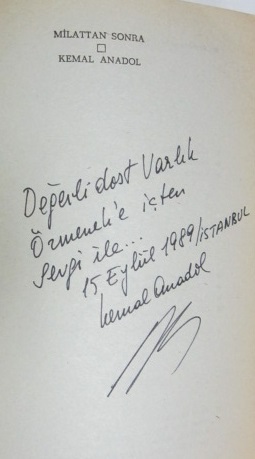 MİLATTAN SONRA
KEMAL ANADOL
Değerli dost Varlık
Örmenek'e içten
sevgi ile...
15 Eylül 1989/İSTANBUL
Kemal Anadol